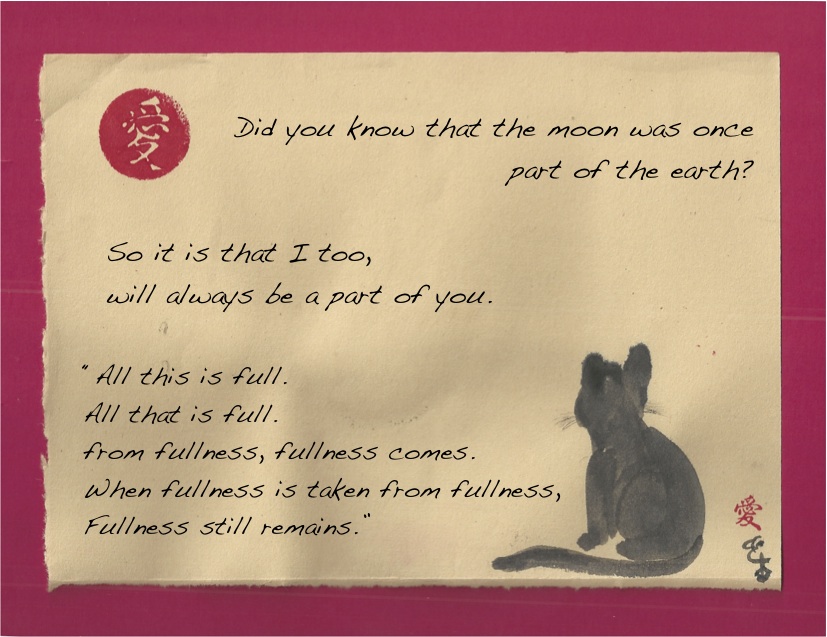 愛
Did you know that the moon was once
part of the earth?
So it is that I too,
will always be a part of you.
"All this is full.
All that is full.
from fullness, fullness comes.
When fullness is taken from fullness,
Fullness still remains."
愛